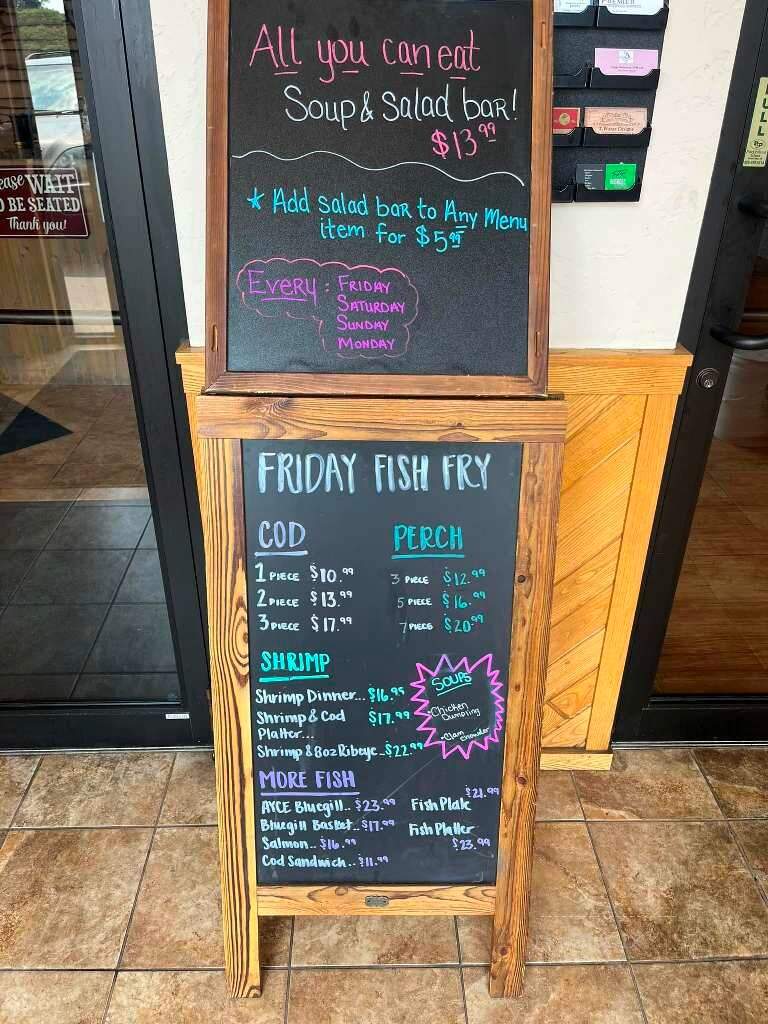 All you can eat
Soup & Salad bar!
$13.99
* Add salad bar to Any Menu
item for $5.99
Every: Friday
Saturday
Sunday
Monday
Please WAIT
TO BE SEATED
Thank you!
PULL
FRIDAY FISH FRY
COD
1 PIECE $10.99
2 PIECE $13.99
3 PIECE $17.99
PERCH
3 PIECE $12.99
5 PIECE $16.99
7 PIECE $20.99
SHRIMP
Shrimp Dinner... $16.95
Shrimp & Cod $17.99
Platter...
Shrimp & 8oz Ribeye.. $22.99
SOUPS
Chicken
Dumpling
Clam chowder
MORE FISH
AYCE Bluegill.. $23.99
Bluegill Basket.. $17.99
Salmon.. $16.99
Cod Sandwich.. $11.99
$21.99
Fish Plate
Fish Platter
$23.99